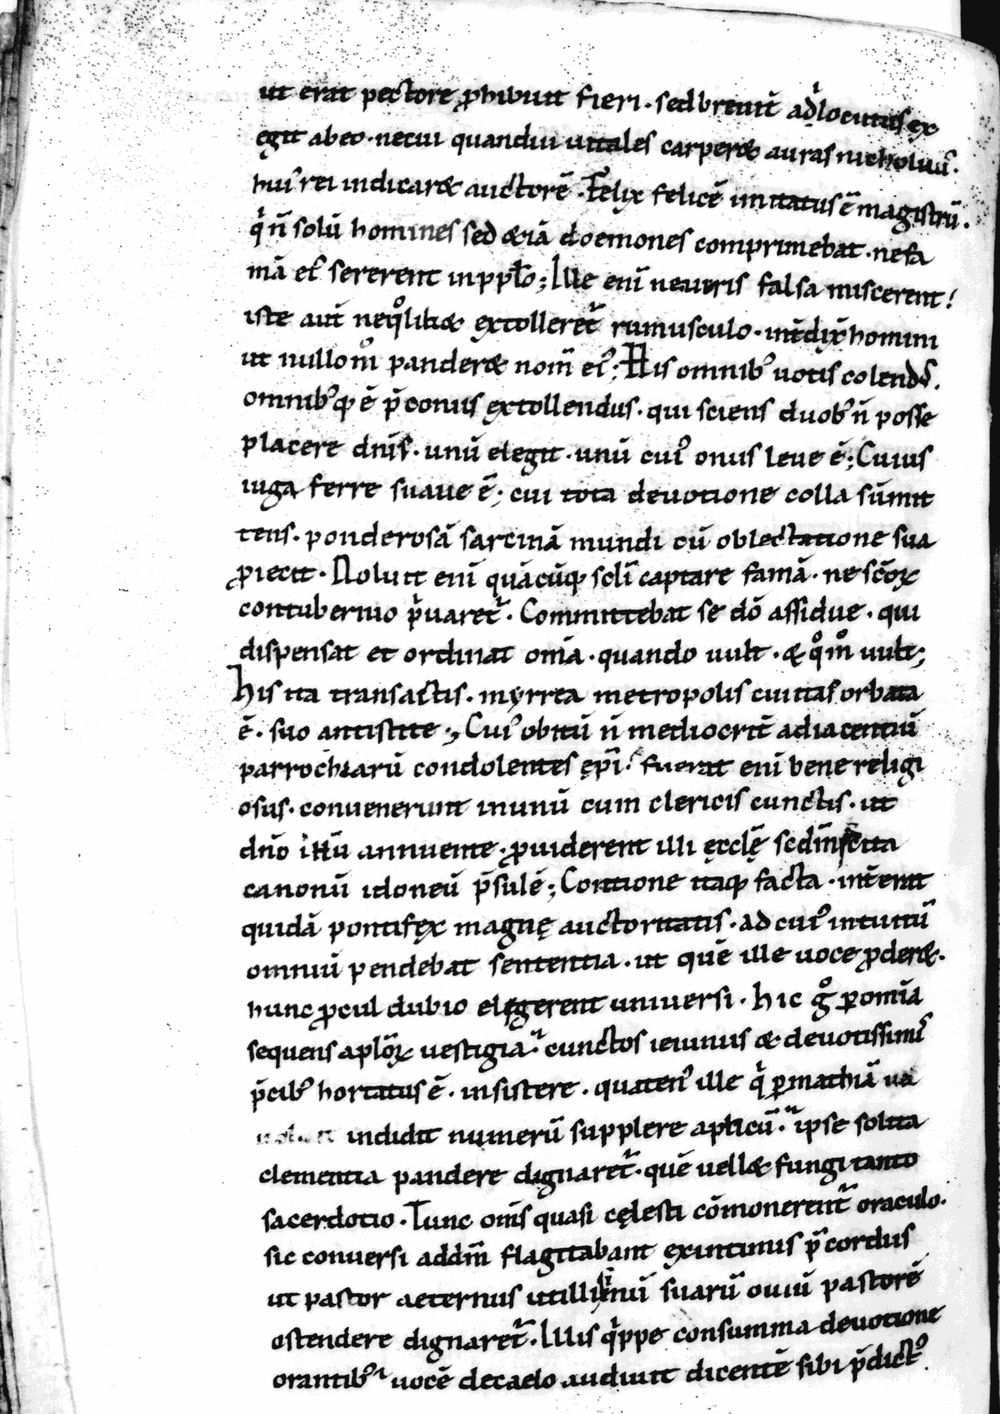 ut erat pectore ꝓhibuit fieri · sed breuit̄ adlocutus ex
egit ab eo · ne cui quandiu uitales carperet auras nicholaū ·
hui᷒ rei indicaret auctorē · Felix felicē imitatus ē magistrū ·
qͥ n̄ solū homines sed &iā doemones comprimebat · ne fa
mā ei᷒ sererent in pplo ; Ille eni ne ueris falsa miscerent !
iste aut̄ ne qͦlib& extolleret᷑ rumusculo · int̄dix̄ homini
ut nullo m̊ pander& nom̄ ei᷒ ; His omnib᷒ uotis colend᷒ .
omnib᷒q; ē p̄coniis extollendus · qui sciens duob᷒ n̄ posse
placere dnīs · unū elegit · unū cui᷒ onus leue ē ; Cuius
iuga ferre suaue ē ; cui tota deuotione colla sūmit
tens · ponderosā sarcinā mundi cū oblectatione sua
ꝓiecit · Noluit eni quācūq; sclī captare famā · ne sc̄oꝝ
contubernio pͥuaret᷑ · Committebat se dō assidue · qui
dispensat et ordinat om̄ia · quando uult · & qͦm̊ uult ;
His ita transactis · myrrea metropolis ciuitas orbata
ē · suo antistite ; Cui᷒ obitū n̄ mediocrit̄ adiacentiū
parrochiarū condolentes ęp̄i · fuerat eni bene religi
osus · conuenerunt in unū cum clericis cunctis · ut
dn̄o annuente · ꝓuiderent illi ęcclę̄ scdm̄ scita
canonū idoneū p̄sulē ; Contione itaq; facta · int̄erat
quidā pontifęx magnę auctoritatis · ad cui᷒ intuitū
omniū pendebat sententia · ut quē ille uoce ꝓder& ·
hunc ꝓcul dubio elegerent uniuersi · Hic gͦ ꝑ omīa
sequens aplōꝝ uestigia · cunctos ieiuniis & deuotissimis
p̄cib᷒ hortatus ē · insistere · quaten᷒ ille qͥ ꝑ mathiā
indidit numerū supplere aplicū · ipse solita
clementia pandere dignaret᷑ · quē uell& fungi tanto
sacerdotio · Tunc om̄s quasi cęlesti cōmonerent᷑ oraculo ·
sic conuersi ad dm̄ flagitabant ex intimis p̄cordiis
ut pastor aeternus utillimū suarū ouiū pastorē
ostendere dignaret᷑ · Illis qͥppe cum summa deuotione
orantib᷒ uocē de caelo audiuit dicentē sibi p̄dict᷒